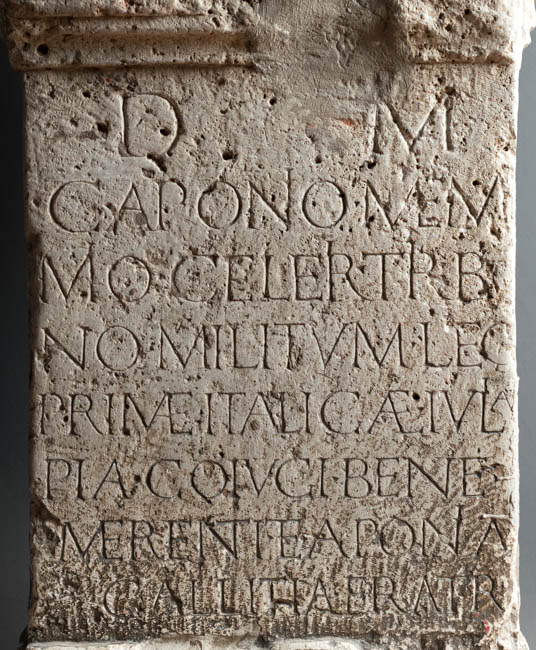 D M
C APONIO MEM
MO CELERI TRIB
NO MILITVM LEG
PRIMAE ITALICAE IVLA
PIA COIVGI BENE
MERENTI ET APONIA
CALLITHIA FRATRI